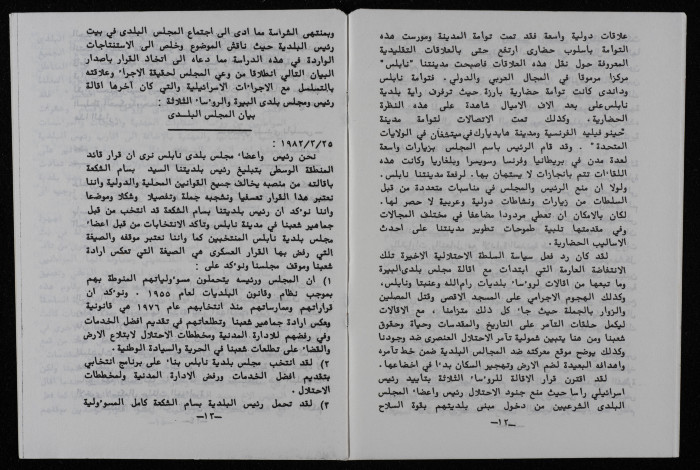 علاقات دولية واسعة فقد تمت توأمة المدينة ومورست هذه
التوأمة باسلوب حضارى ارتفع حتى بالعلاقات التقليدية
المعروفة حول نقل هذه العلاقات فاصبحت مدينتنا "نابلس"
مركزا مرموقا في المجال العربي والدولي. فتوأمة نابلس
وداندى كانت توأمة حضارية بارزة حيث ترفرف راية بلدية
نابلس على بعد الاف الاميال شاهدة على هذه النظرة
الحضارية. وكذلك تمت الاتصالات لتوأمة مدينة
"جينوفيليه الفرنسية ومدينة هايدبارك في ميتشغان في الولايات
المتحدة". وقد قام الرئيس باسم المجلس بزيارات واسعة
لعدة مدن في بريطانيا وفرنسا وسويسرا وبلغاريا وكانت هذه
اللقاءات تتم بانجازات لا يستهان بها. لرفعة مدينتنا نابلس.
ولولا ان منع الرئيس والمجلس في مناسبات متعددة من قبل
السلطات من زيارات ونشاطات دولية وعربية لا حصر لها.
لكان بالامكان ان تعطي مردودا مضاعفا في مختلف المجالات
وفي مقدمتها تلبية طموحات تطوير مدينتنا على احدث
الاساليب الحضارية.
لقد كان رد فعل سياسة السلطة الاحتلالية الاخيرة تلك
الانتفاضة العارمة التي ابتدأت مع اقالة مجلس بلدى البيرة
وما تبعها من اقالات لروءساء بلديات رام الله وعنبتا ونابلس،
وكذلك الهجوم الاجرامي على المسجد الاقصى وقتل المصلين
والزوار بالجملة حيث جاء كل ذلك متزامنا، مع الاقالات
ليكمل حلقات التآمر على التاريخ والمقدسات وحياة وحقوق
شعبنا ومن هنا يتبين شمولية تآمر الاحتلال العنصرى ضد وجودنا
وكذلك يوضح موقع معركته ضد المجالس البلدية ضمن خط تآمره
واهدافه البعيدة لضم الارض وتهجير السكان بدءا في اخضاعها.
لقد اقترن قرار الاقالة للروءساء الثلاثة بتأييد رئيس
اسرائيلي رأسا حيث منع جنود الاحتلال رئيس واعضاء المجلس
البلدى الشرعيين من دخول مبنى بلديتهم بقوة السلاح
ــ١٢ــ
وبمنتهى الشراسة مما ادى الى اجتماع المجلس البلدى في بيت
رئيس البلدية حيث ناقش الموضوع وخلص الى الاستنتاجات
الواردة في هذه الدراسة مما دعاه الى اتخاذ القرار باصدار
البيان التالي انطلاقا من وعي المجلس لحقيقة الاجراء وعلاقته
بالتسلسل مع الاجراءات الاسرائيلية والتي كان آخرها اقالة
رئيس ومجلس بلدى البيرة والروءساء الثلاثة :
بيان المجلس البلدى
١٩٨٢/٣/٢٥ :
نحن رئيس واعضاء مجلس بلدى نابلس نرى ان قرار قائد
المنطقة الوسطى بتبليغ رئيس بلديتنا السيد بسام الشكعة
باقالته من منصبه يخالف جميع القوانين المحلية والدولية واننا
نعتبر هذا القرار تعسفيا ونشجبه جملة وتفصيلا وشكلا وموضوعا
واننا نوءكد ان رئيس بلديتنا بسام الشكعة قد انتخب من قبل
جماهير شعبنا في مدينة نابلس وتأكد الانتخابات من قبل اعضاء
مجلس بلدية نابلس المنتخبين كما واننا نعتبر موقفه والصيغة
التي رفض بها القرار العسكرى هي الصيغة التي تعكس ارادة
شعبنا وموقف مجلسنا ونوءكد على :
١) ان المجلس ورئيسه يتحملون مسوءولياتهم المنوطة بهم
بموجب نظام وقانون البلديات لعام ١٩٥٥. ونوءكد ان
قراراتهم وممارساتهم منذ انتخابهم عام ١٩٧٦ هي قانونية
وتعكس ارادة جماهير شعبنا وتطلعاتهم في تقديم افضل الخدمات
وفي رفضهم للادارة المدنية ومخططات الاحتلال لابتلاع الارض
والقضاء على تطلعات شعبنا في الحرية والسيادة الوطنية.
٢) لقد انتخب مجلس بلدية نابلس بناء على برنامج انتخابي
بتقديم افضل الخدمات ورفض الادارة المدنية ولمخططات
الاحتلال.
٣) لقد تحمل رئيس البلدية بسام الشكعة كامل المسوءولية
ــ١٣ــ